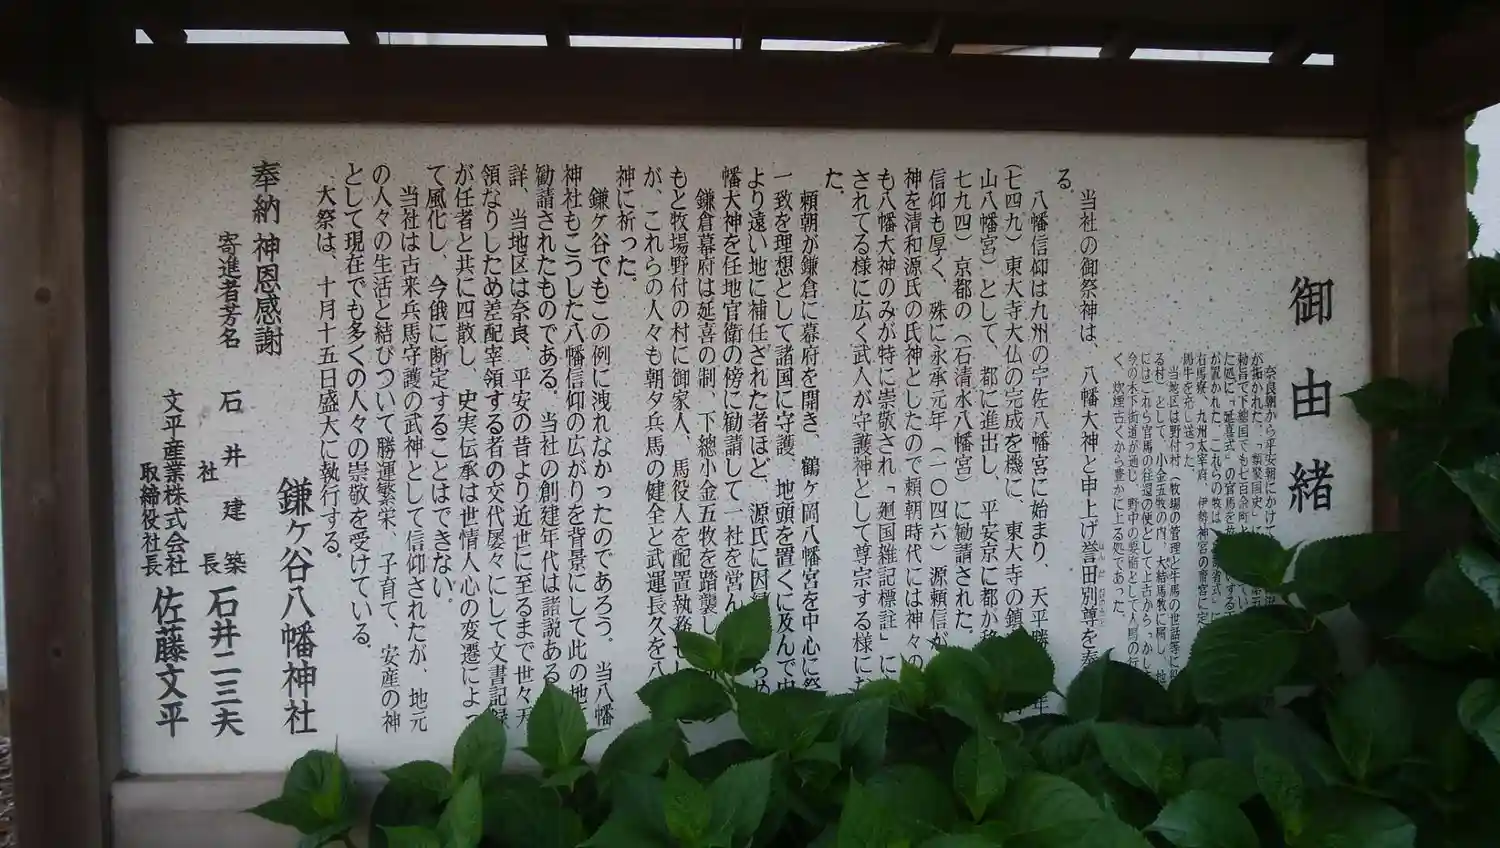 御由緒
奈良朝から平安朝にかけて
が置かれた。これらの牧は
右馬寮、九州太宰府、伊勢神宮の斎宮に定
馬牛を充し送った。
当地区は野付村(牧場の管理と牛馬の世話等に
る村)として、小金五牧の内、大結馬牧に属し、
には)これら官馬の往還の便として上古から、かし
今の木下街道が通じ、野中の要衝として人馬の
く、炊煙古くから豊かに上る処であった。
当社の御祭神は、八幡大神と申上げ誉田別尊を奉
る。
八幡信仰は九州の宇佐八幡宮に始まり、天平勝
(七四九)東大寺大仏の完成を機に、東大寺の鎮
山八幡宮)として、都に進出し、平安京に都が移
七九四)京都の(石清水八幡宮)に勧請された。
信仰も厚く、殊に永承元年(一〇四六)源頼信が
神を清和源氏の氏神としたので頼朝時代には神々の
も八幡大神のみが特に崇敬され「廻国雑記標註」に
されてる様に広く武人が守護神として尊宗する様に
た。
頼朝が鎌倉に幕府を開き、鶴ヶ岡八幡宮を中心に祭
一致を理想として諸国に守護、地頭を置くに及んで
より遠い地に補任された者ほど、源氏に因
幡大神を任地官衛の傍に勧請して一社を営ん
鎌倉幕府は延喜の制、下總小金五牧を踏襲し
もと牧場野付の村に御家人、馬役人を配置執務
が、これらの人々も朝夕兵馬の健全と武運長久を八
神に祈った。
鎌ヶ谷でもこの例に洩れなかったのであろう。当八幡
神社もこうした八幡信仰の広がりを背景にして此の地
勧請されたものである。当社の創建年代は諸説ある
詳、当地区は奈良、平安の昔より近世に至るまで世々天
領なりしため差配宰領する者の交代屡々にして文書記録
が任者と共に四散し、史実伝承は世情人心の変遷によっ
て風化し、今俄に断定することはできない。
当社は古来兵馬守護の武神として信仰されたが、地元
の人々の生活と結びついて勝運繁栄、子育て、安産の神
として現在でも多くの人々の崇敬を受けている。
大祭は、十月十五日盛大に執行する。
鎌ヶ谷八幡神社
奉納 神恩感謝
寄進者芳名 石井建築
社長 石井二三夫
文平産業株式会社
取締役社長 佐藤文平